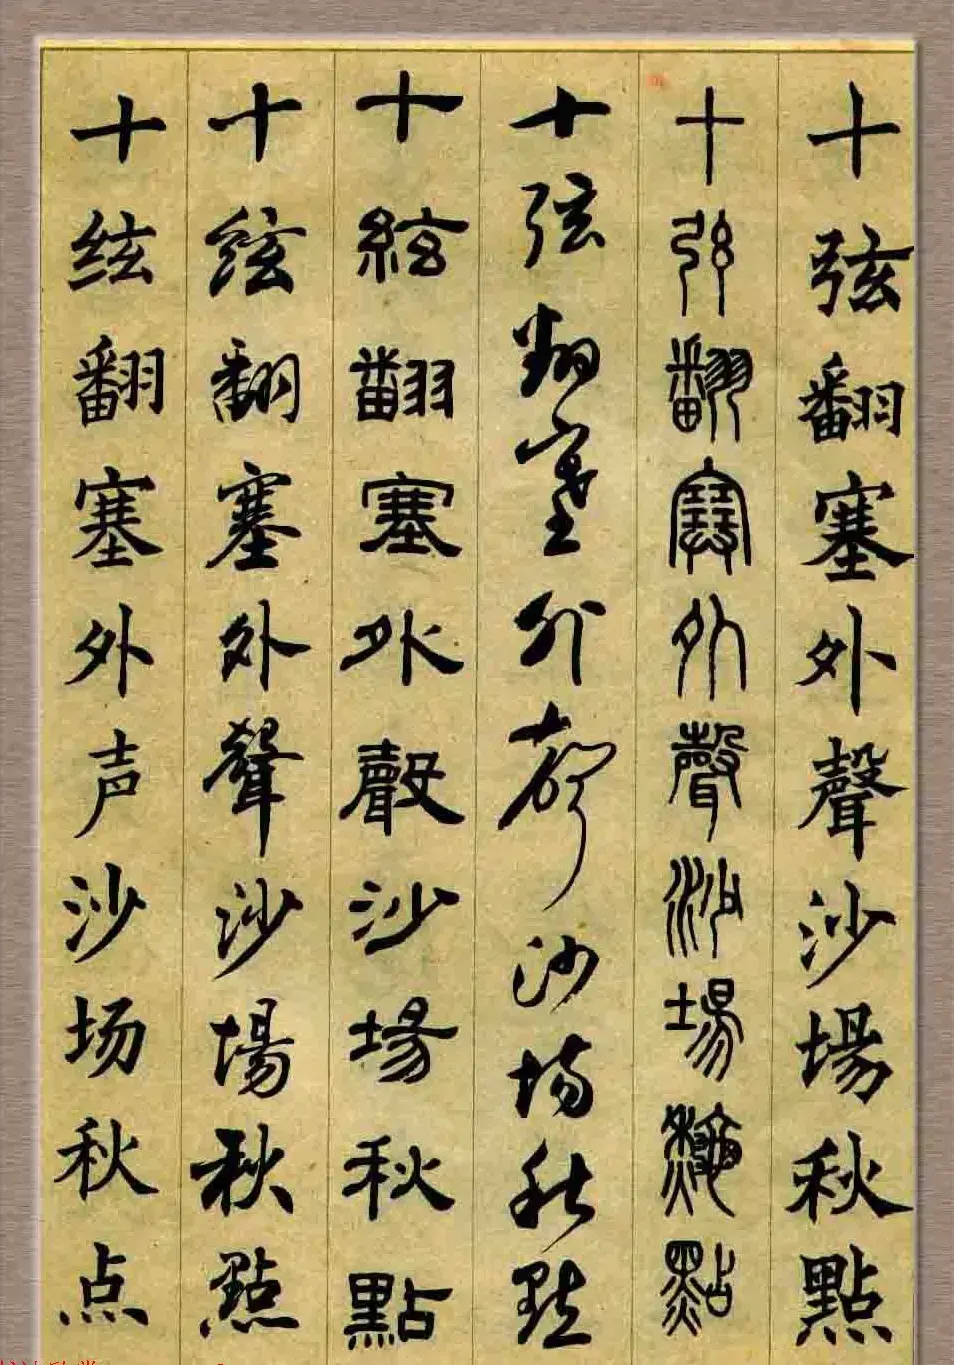 十弦翻塞外聲沙場秋點
十弦翻塞外聲沙場秋點
十弦翻塞外聲沙場秋點
十絃翻塞外聲沙場秋點
十絃翻塞外聲沙場秋點
十纮翻塞外声沙场秋点